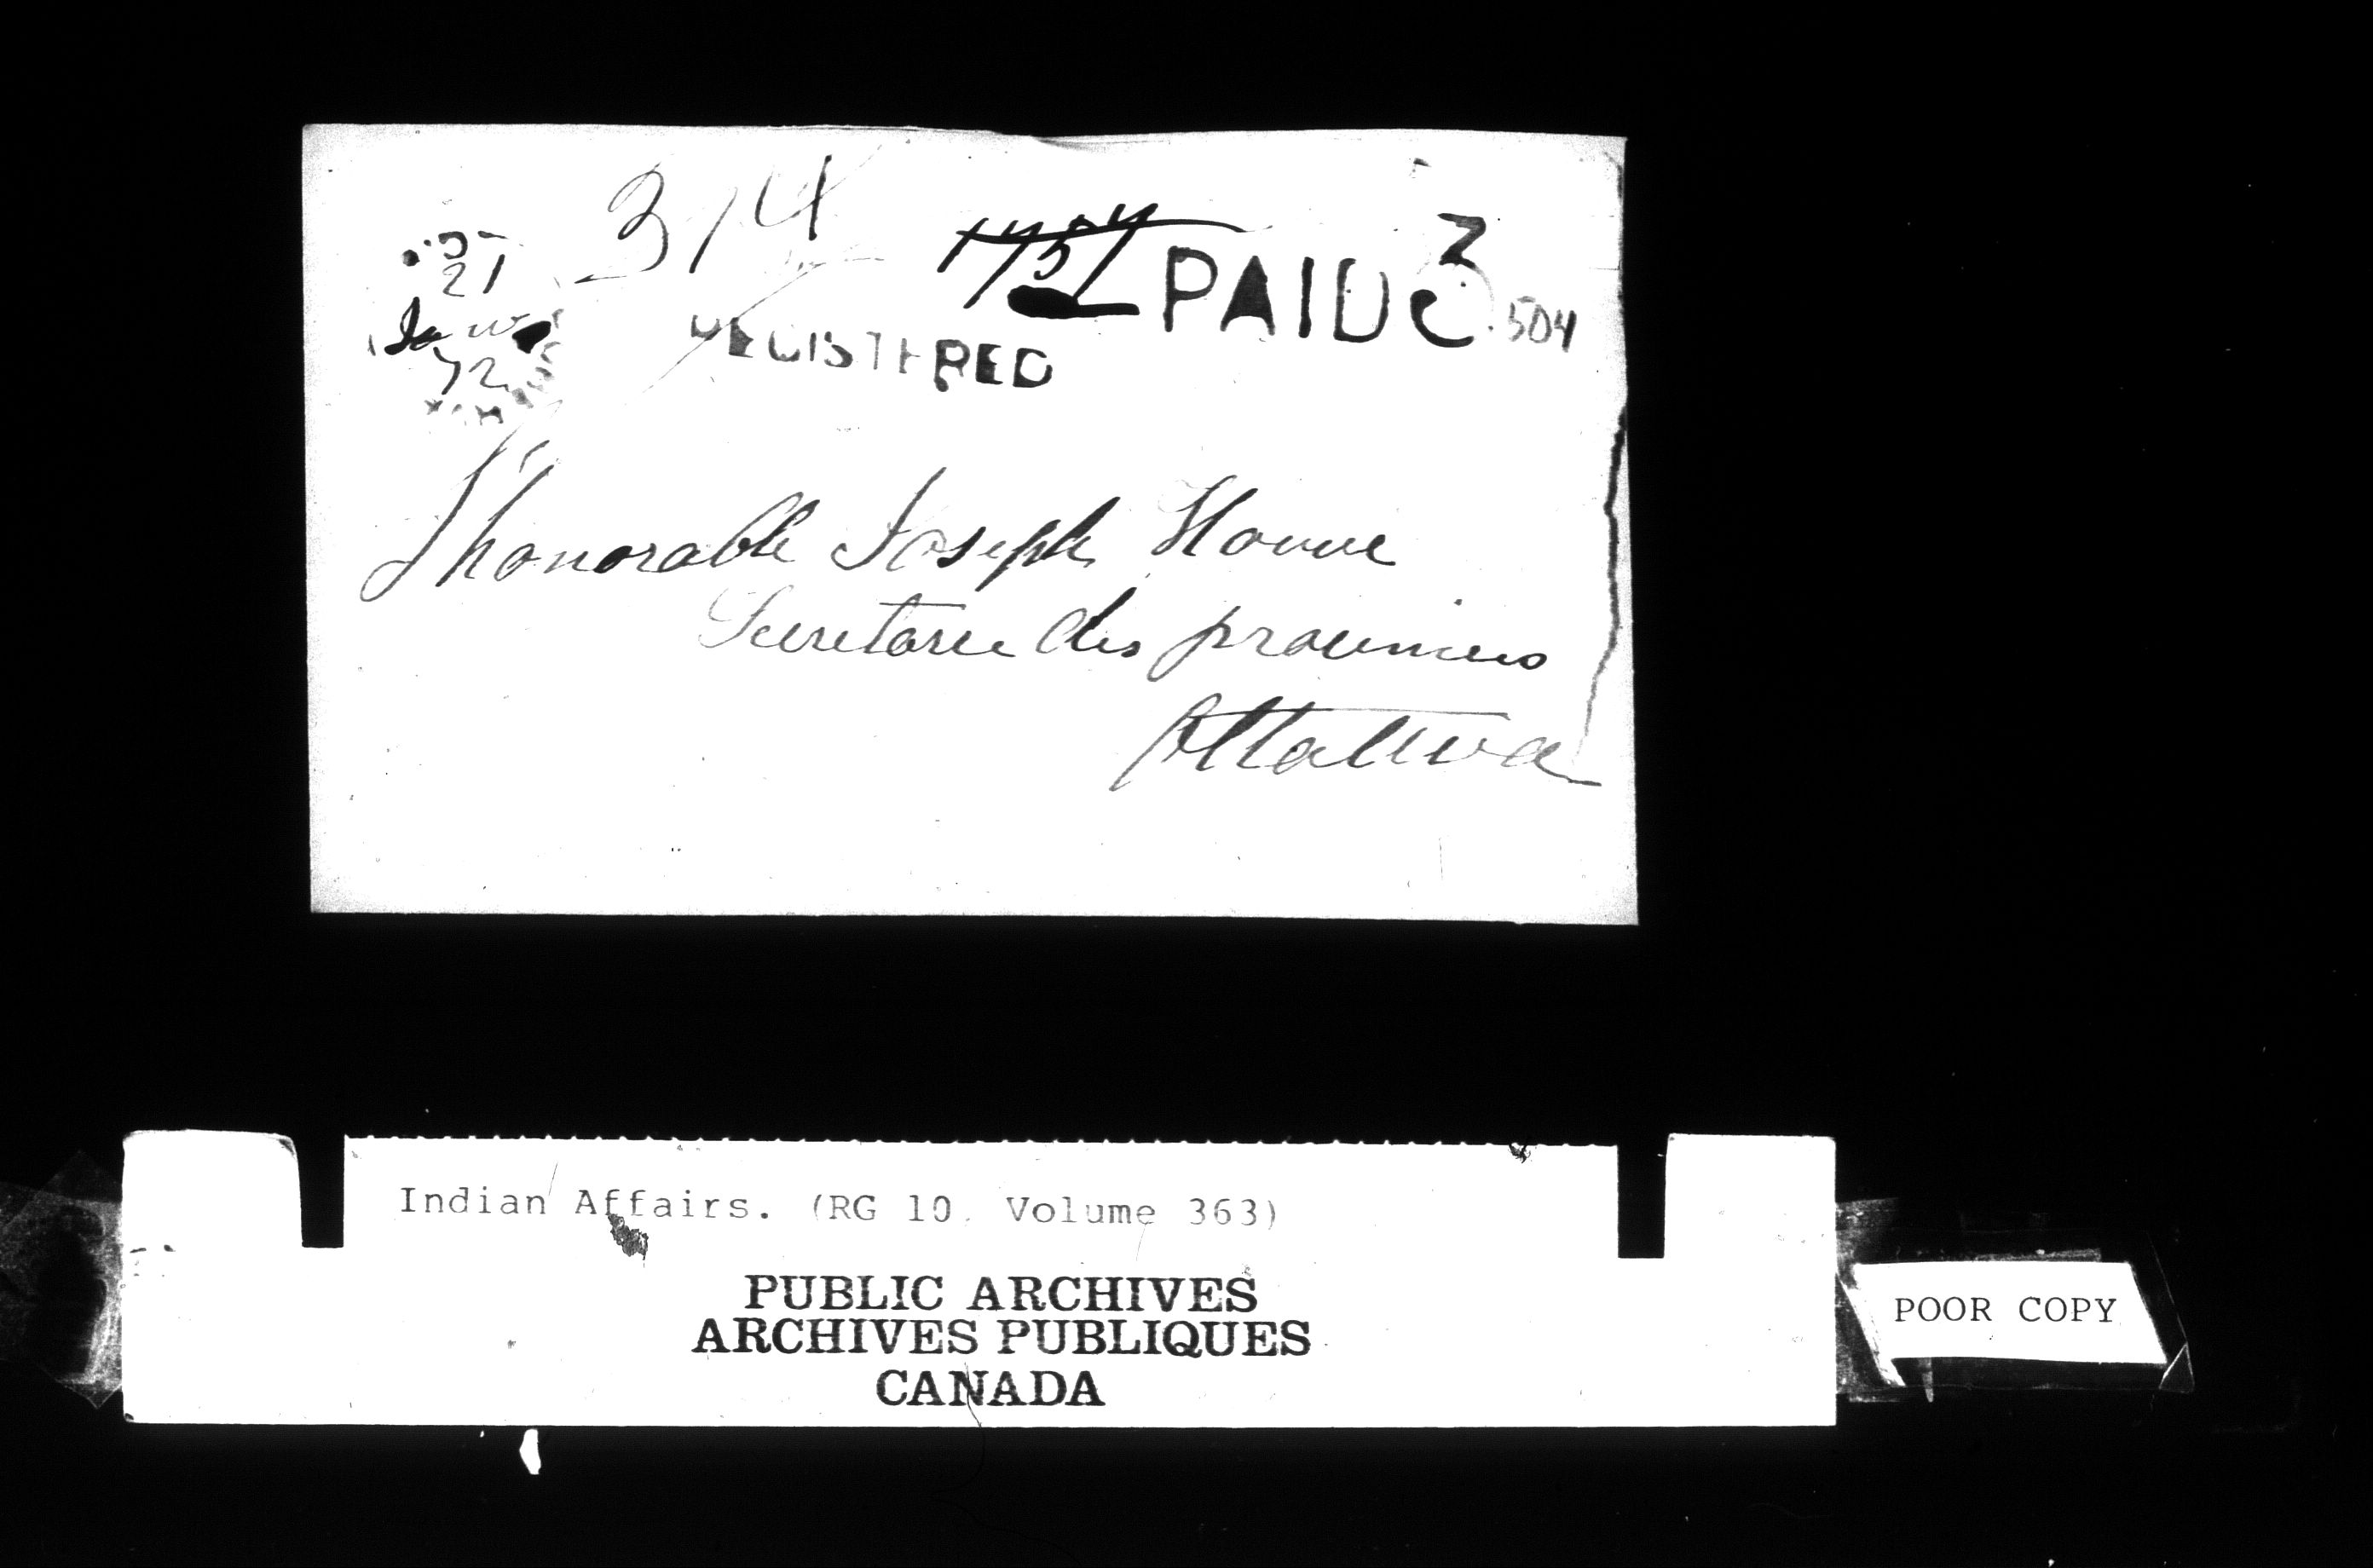 314
PAID 3
504
21
72
REGISTERED
L'honorable Joseph Howe
Secretaire des provinces
Ottawa
Indian Affairs. (RG 10, Volume 363)
PUBLIC ARCHIVES
ARCHIVES PUBLIQUES
CANADA
POOR COPY